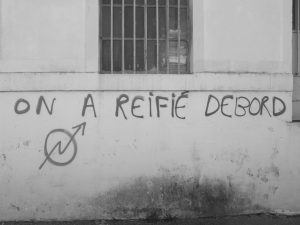 ON A REIFIÉ DEBORD